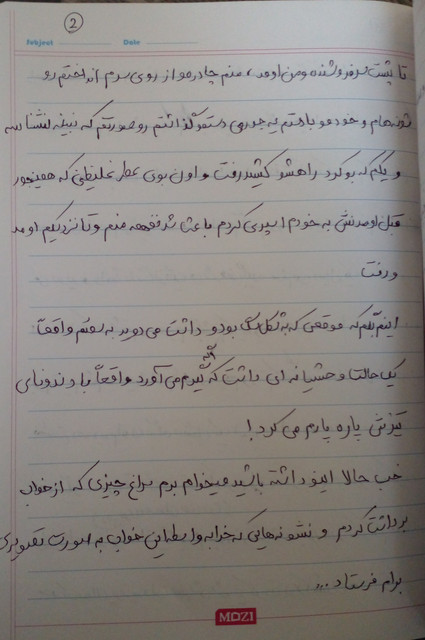 2
Subject Date
تا پشت سر فروشنده ومن اومد، منم چادرمو از روی سرم انداختم رو
شونه هام و خودمو باختم یه جورمی دستمو گذاشتم رو صورتم که نبینه نشناسه
و یکم که بو کرد راهشو کشید رفت و اون بوی عطر غلیظی که همینجور
قبل اومدنش به خودم اسپری کردم باعث شد نفهمه منم و تا نزدیکیم اومد
و رفت
اینم بگم که موقعی که به شکل سگ بود و داشت می دوید به سمتم واقعاً
یک حالت وحشیانه ای داشت که اگه گیرم می آورد واقعاً با دندونای
تیزش پاره پارم می کرد!
خب حالا اینو داشته باشید میخوام برم سراغ چیزی که از خواب
برداشت کردم و نشونه هایی که خدا به واسطه این خواب به صورت تصویری
برام فرستاد ...
MOZI